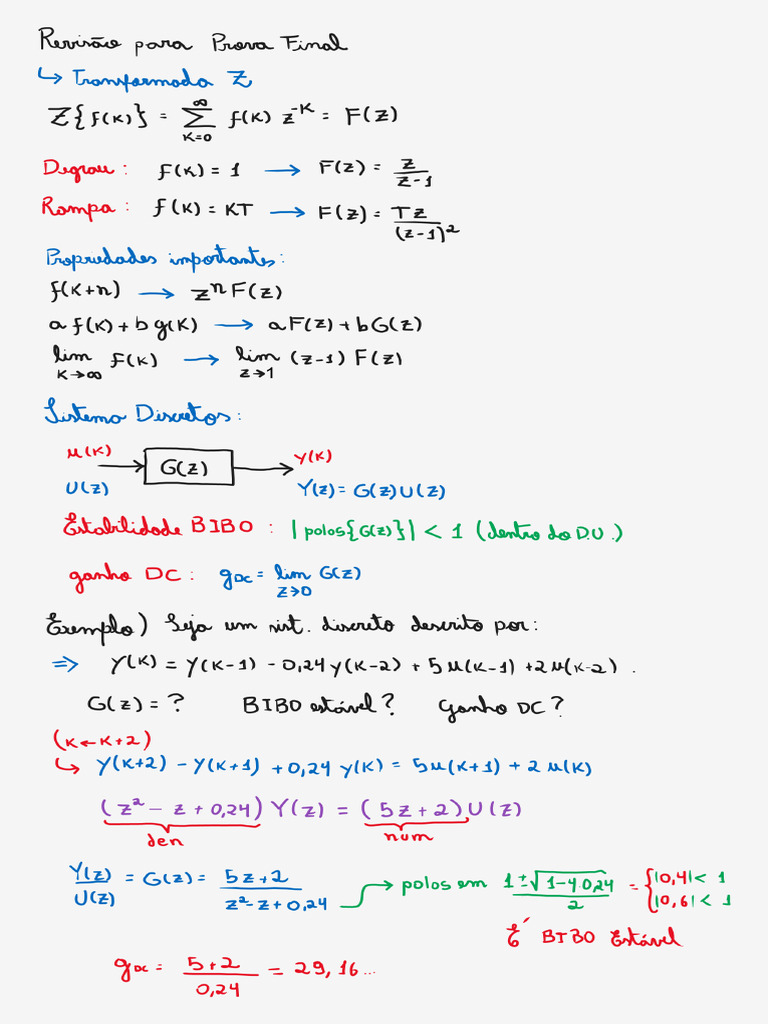 Revisão para Prova Final
↳ Transformada Z
Z{f(k)} = ∑_{k=0}^{∞} f(k) z^{-k} = F(z)
Degrau : f(k) = 1 → F(z) = z/(z-1)
Rampa : f(k) = KT → F(z) = Tz/(z-1)^2
Propriedades importantes:
f(k+n) → z^n F(z)
a f(k) + b g(k) → a F(z) + b G(z)
lim_{k→∞} f(k) → lim_{z→1} (z-1) F(z)
Sistema Discretos:
u(k) y(k)
G(z)
U(z) Y(z) = G(z) U(z)
Estabilidade BIBO : |polos{G(z)}| < 1 (dentro do D.U.)
ganho DC : g_DC = lim_{z→0} G(z)
Exemplo) Seja um sist. discreto descrito por:
⇒ y(k) = y(k-1) - 0,24 y(k-2) + 5u(k-1) + 2u(k-2) .
G(z) = ? BIBO estável? Ganho DC?
(k ← k+2)
↳ y(k+2) - y(k+1) + 0,24 y(k) = 5u(k+1) + 2u(k)
(z^2 - z + 0,24) Y(z) = (5z+2) U(z)
den num
Y(z)/U(z) = G(z) = (5z+2)/(z^2-z+0,24) → polos em (1±√(1-4·0,24))/2 = { |0,4| < 1
|0,6| < 1
É BIBO Estável
g_DC = (5+2)/0,24 = 29,16...